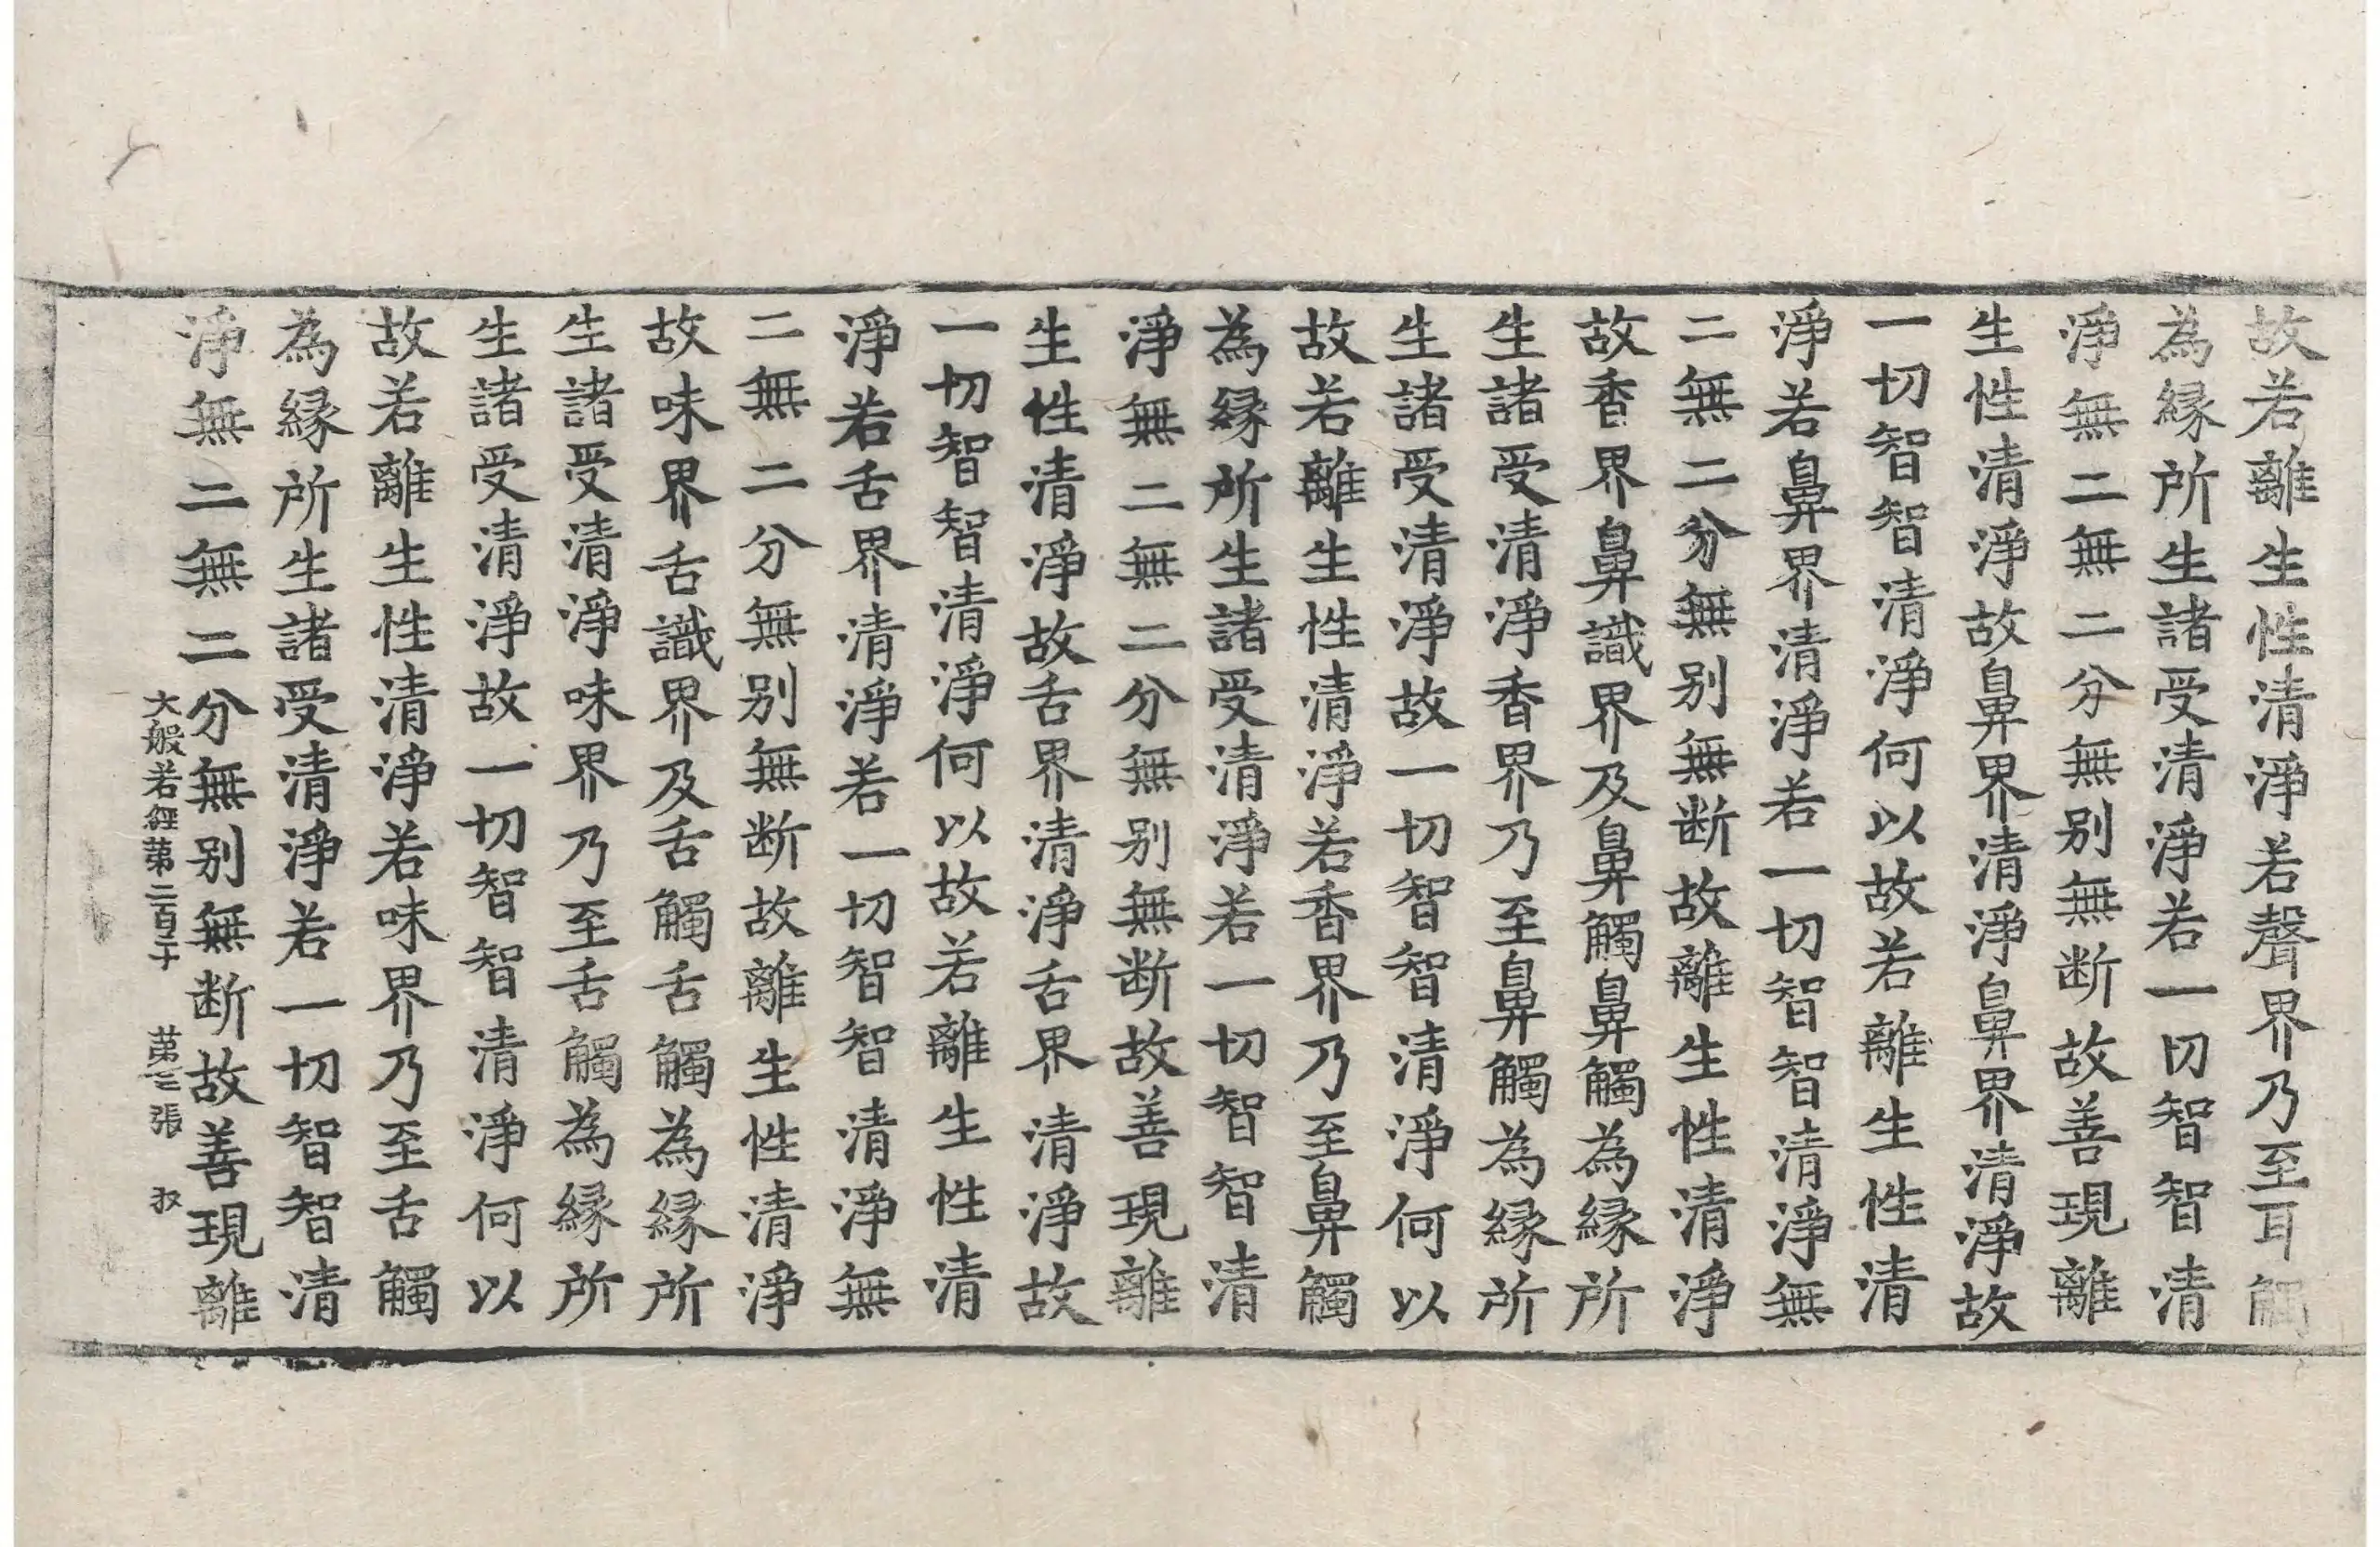 故若離生性清淨若聲界乃至耳觸
為縁所生諸受清淨若一切智智清
淨無二無二分無別無断故善現離
生性清淨故鼻界清淨鼻界清淨故
一切智智清淨何以故若離生性清
淨若鼻界清淨若一切智智清淨無
二無二分無別無断故離生性清淨
故香界鼻識界及鼻觸鼻觸為縁所
生諸受清淨香界乃至鼻觸為縁所
生諸受清淨故一切智智清淨何以
故若離生性清淨若香界乃至鼻觸
為縁所生諸受清淨若一切智智清
淨無二無二分無別無断故善現離
生性清淨故舌界清淨舌界清淨故
一切智智清淨何以故若離生性清
淨若舌界清淨若一切智智清淨無
二無二分無別無断故離生性清淨
故味界舌識界及舌觸舌觸為縁所
生諸受清淨味界乃至舌觸為縁所
生諸受清淨故一切智智清淨何以
故若離生性清淨若味界乃至舌觸
為縁所生諸受清淨若一切智智清
淨無二無二分無別無断故善現離
大般若經第二百五十 第三張